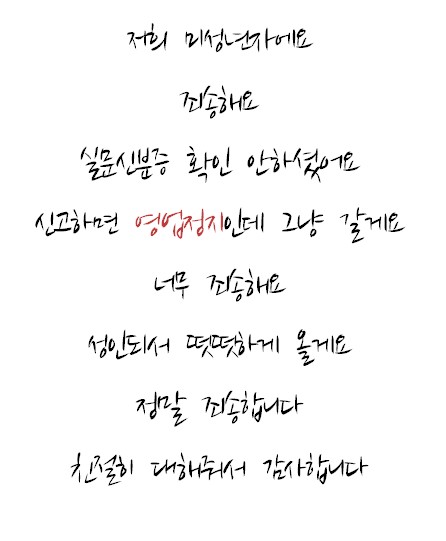 저희 미성년자에요
죄송해요
실문신분증 확인 안하셨어요
신고하면 영업정지인데 그냥 갈게요
너무 죄송해요
성인되서 떳떳하게 올게요
정말 죄송합니다
친절히 대해줘서 감사합니다